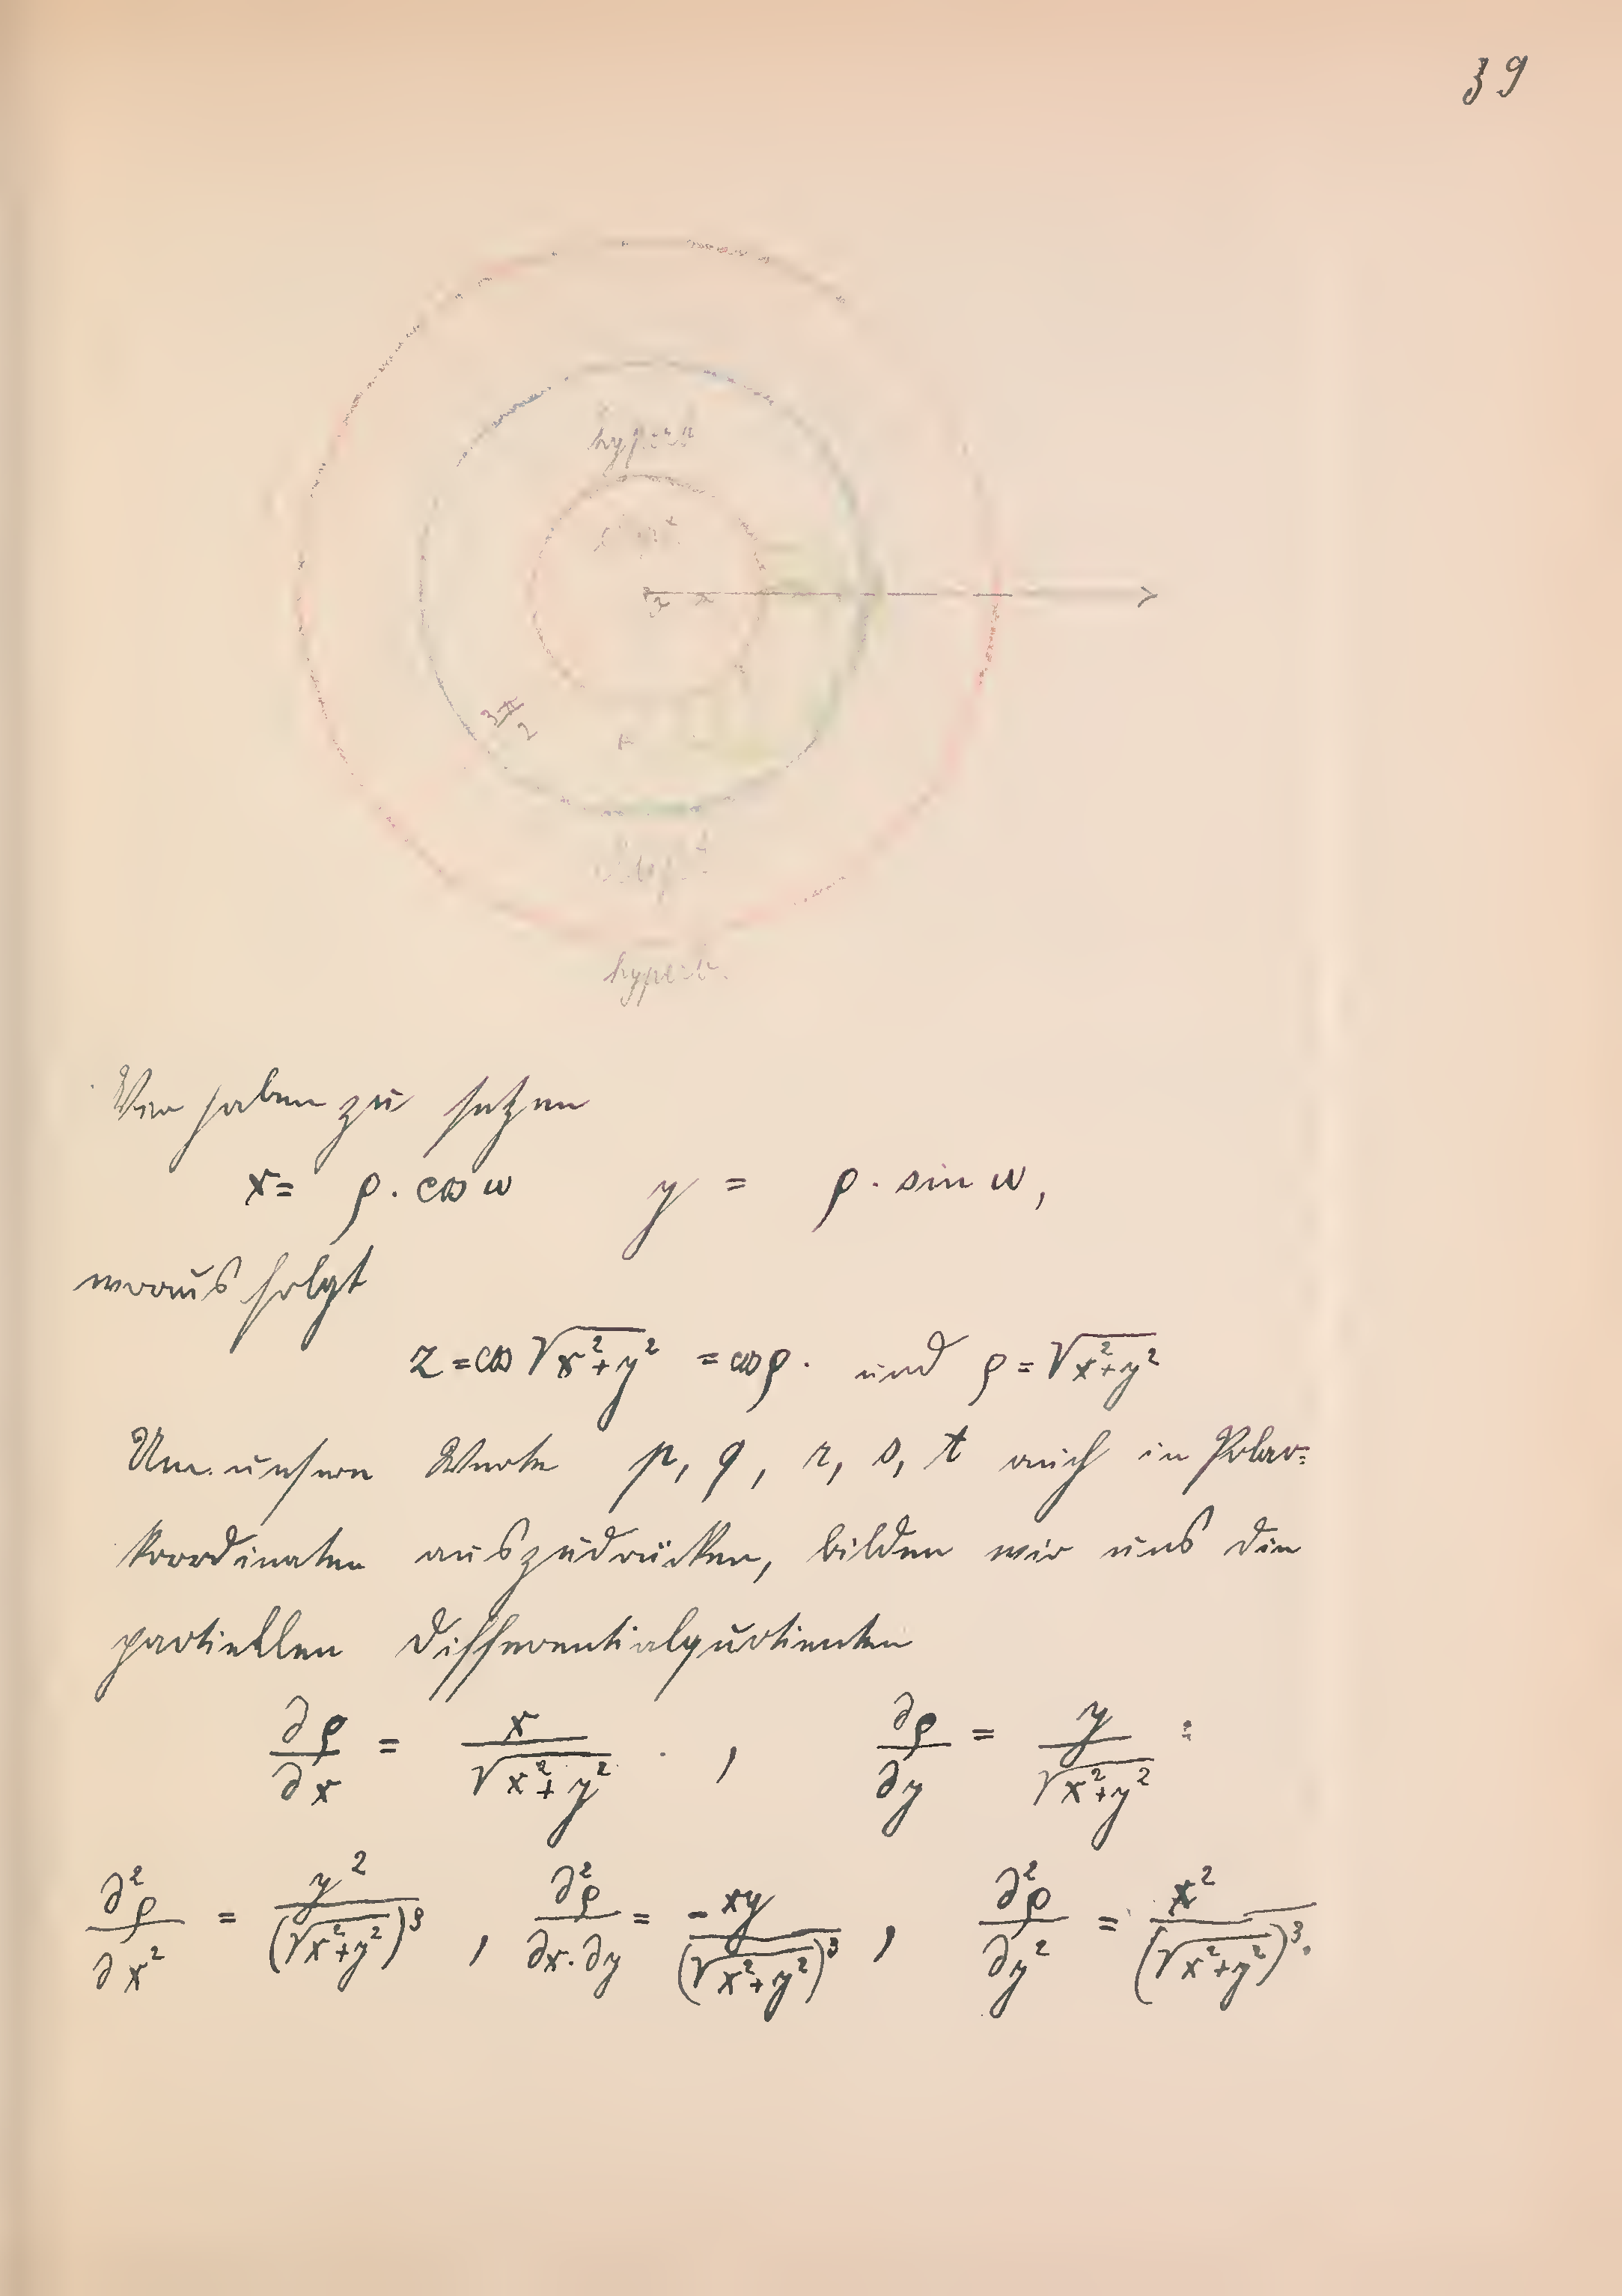 39
hyperb
3π/2
π
hyperb.
Wir haben zu setzen
x = ρ. cos w    y = ρ. sin w,
woraus folgt
z = cos √(x²+y²) = cos ρ. und ρ = √(x²+y²)
Um unsere Werte p, q, r, s, t auch in Polar=
koordinaten auszudrücken, bilden wir uns die
partiellen Differentialquotienten
∂ρ/∂x = x/√(x²+y²) , ∂ρ/∂y = y/√(x²+y²) :
∂²ρ/∂x² = y²/(√(x²+y²))³ , ∂²ρ/∂x.∂y = -xy/(√(x²+y²))³ , ∂²ρ/∂y² = x²/(√(x²+y²))³.